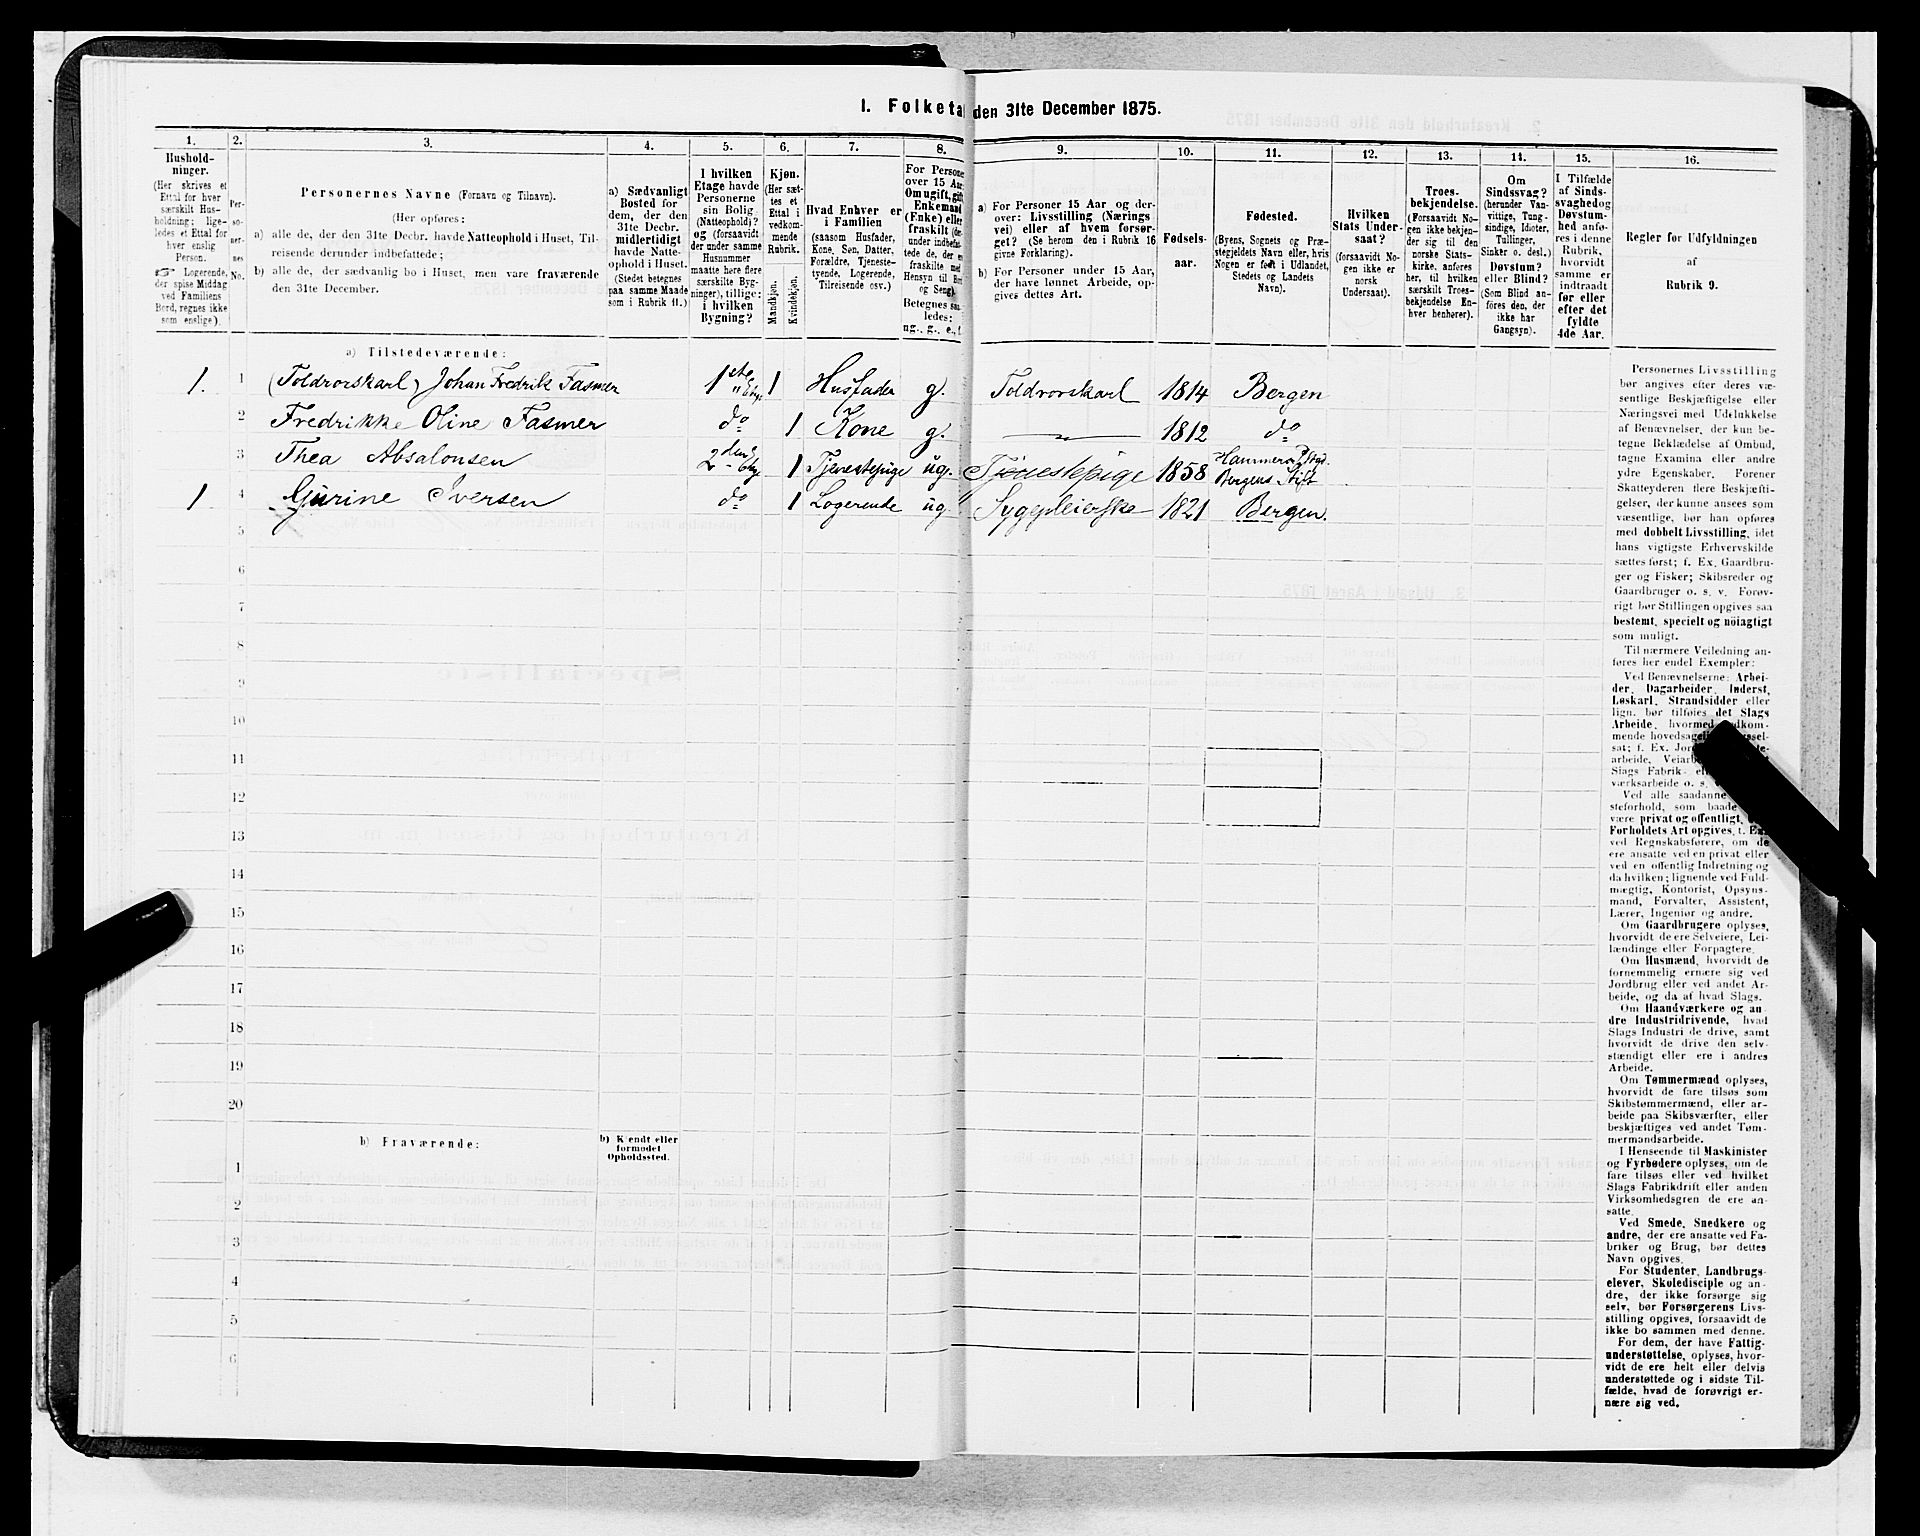 I. Folketal den 31te December 1875.
1.
2.
3.
4.
5.
6.
7.
8.
9.
10.
11.
12.
13.
14.
15.
16.
Hushold-
ninger.
(Her skrives et
Ettal for hver
særskilt Hus-
holdning; lige-
ledes et Ettal for
hver enslig
Person.
☞ Logerende,
der spise Middag
ved Familiens
Bord, regnes ikke
som enslige).
Per-
so-
ner-
nes
No.
Personernes Navne (Fornavn og Tilnavn).
(Her opføres:
a) alle de, der den 31te Decbr. havde Natteophold i Huset, Til-
reisende derunder indbefattede;
b) alle de, der sædvanlig bo i Huset, men vare fraværende
den 31te December.
a) Sædvanligt
Bosted for
dem, der den
31te Decbr.
midlertidigt
havde Natte-
ophold i Huset.
(Stedet betegnes
paa samme Maade
som i Rubrik 11.)
I hvilken
Etage havde
Personerne
sin Bolig
(Natteophold)?
og (forsaavidt
der under samme
Husnummer
maatte høre flere
særskilte Byg-
ninger), tillige:
i hvilken
Bygning?
Kjøn.
(Her sæt-
tes et
Ettal i
vedkom-
mende
Rubrik.
Mandkjøn.
Kvindekjøn.
Hvad Enhver er
i Familien
(saasom Husfader,
Kone, Søn, Datter,
Forældre, Tjeneste-
tyende, Logerende,
Tilreisende osv.)
For Personer
over 15 Aar:
Omugift, gift,
Enkemand
(Enke) eller
fraskilt (der-
under indbefat-
tede de, der ere
fraskilte med
Hensyn til Bord
og Seng).
Betegnes saa-
ledes:
ug., g., e., f.
a) For Personer 15 Aar og der-
over: Livsstilling (Nærings-
vei) eller af hvem forsør-
get? (Se herom den i Rubrik 16
givne Forklaring).
b) For Personer under 15 Aar,
der have lønnet Arbeide, op-
gives dettes Art.
Fødsels-
aar.
Fødested.
(Byens, Sognets og Præ-
stegjeldets Navn eller, hvis
Nogen er født i Udlandet,
Stedets og Landets
Navn).
Hvilken
Stats Under-
saat?
(forsaavidt No-
gen ikke er
norsk
Undersaat).
Troes-
bekjendelse.
(Forsaavidt No-
gen ikke bekjen-
der sig til den
norske Stats-
kirke, anføres
her, til hvilken
særskilt Troes-
bekjendelse En-
hver henhører).
Om
Sindssvag?
(herunder Van-
vittige, Tung-
sindige, Idioter,
Tullinger,
Sinker o. desl.)
Døvstum?
eller Blind?
(Som Blind an-
føres den, der
ikke har
Gangsyn).
I Tilfælde
af Sinds-
svaghed og
Døvstum-
hed anfø-
res i denne
Rubrik,
hvorvidt
samme er
indtraadt
før eller
efter det
fyldte
4de Aar.
Regler for Udfyldningen
af
Rubrik 9.
a) Tilstedeværende:
1. 1 (Toldrorskarl) Johan Fredrik Fasmer 1ste Etg. 1 Husfader g. Toldrorskarl 1814 Bergen
2 Fredrikke Oline Fasmer do 1 Kone g. 1812 do
3 Thea Absalonsen 2den Etg 1 Tjenestepige ug. Tjenestepige 1858 Hammers Pstgd. Bergens Stift
1 4 Gurine Iversen do 1 Logerende ug. Sygepleierske 1821 Bergen.
5
6
7
8
9
10
11
12
13
14
15
16
17
18
19
20
b) Fraværende:
b) Kjendt eller
formodet
Opholdssted.
1
2
3
4
5
6
Personernes Livsstilling
bør angives efter deres væ-
sentlige Beskjæftigelse eller
Næringsvei med Udelukkelse
af Benævnelser, der kun be-
tegne Beklædelse af Ombud,
tagne Examina eller andre
ydre Egenskaber. Forener
Skatteyderen flere Beskjæfti-
gelser, der kunne ansees som
væsentlige, bør han opføres
med dobbelt Livsstilling, idet
hans vigtigste Erhvervskilde
sættes først; f. Ex. Gaardbru-
ger og Fisker; Skibsreder og
Gaardbruger o. s. v. Forøv-
rigt bør Stillingen opgives saa
bestemt, specielt og nöiagtigt
som muligt.
Til nærmere Veiledning an-
føres her endel Exempler:
Ved Benævnelserne: Arbei-
der, Dagarbeider, Inderst,
Løskarl, Strandsidder eller
lign. bør tilføies det Slags
Arbeide, hvormed
mende
sat; f. Ex.
arbeide,
Slags Fabrik-
værksarbeide o. s. v.
Ved alle saadanne
steforhold, som baade
være privat og offentligt,
Forholdets Art opgives, t. Ex.
ved Regnskabsførere, om de
ere ansatte ved en privat eller
ved en offentlig Indretning og
da hvilken; lignende ved Fuld-
mægtig, Kontorist, Opsyns-
mand, Forvalter, Assistent,
Lærer, Ingeniør og andre.
Om Gaardbrugere oplyses,
hvorvidt de ere Selveiere, Lei-
lændinge eller Forpagtere.
Om Husmænd, hvorvidt de
fornemmelig ernære sig ved
Jordbrug eller ved andet Ar-
beide, og da af hvad Slags.
Om Haandværkere og an-
dre Industridrivende, hvad
Slags Industri de drive, samt
hvorvidt de drive den selv-
stændigt eller ere i andres
Arbeide.
Om Tømmermænd oplyses,
hvorvidt de fare tilsøs som
Skibstømmermænd, eller ar-
beide paa Skibsværfter, eller
beskjæftiges ved andet Tøm-
mermandsarbeide.
I Henseende til Maskinister
og Fyrbødere oplyses, om de
fare tilsøs eller ved hvilket
Slags Fabrikdrift eller anden
Virksomhedsgren de ere an-
satte.
Ved Smede, Snedkere og
andre, der ere ansatte ved Fa-
briker og Brug, bør dettes
Navn opgives.
For Studenter, Landbrugs-
elever, Skoledisciple og an-
dre, der ikke forsørge sig
selv, bør Forsørgerens Livs-
stilling opgives, forsaavidt de
ikke bo sammen med denne.
For dem, der have Fattig-
understøttelse, oplyses, hvor-
vidt de ere helt eller delvis
understøttede og i sidste Til-
fælde, hvad de forøvrigt er-
nære sig ved.